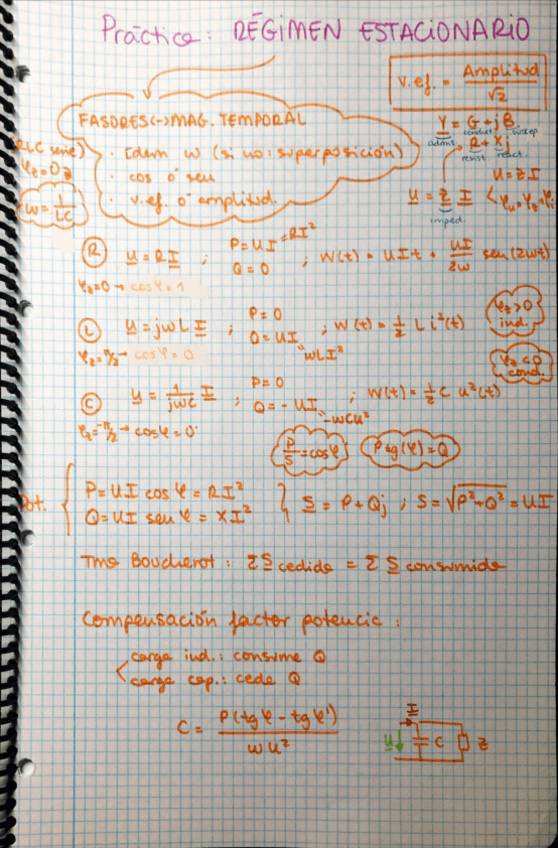 Práctica: RÉGIMEN ESTACIONARIO
v.ef. = Amplitud / √2
FASORES(-)MAG. TEMPORAL
· Idem w (si no: superposición)
· cos ó sen
· v.ef. ó amplitud.
RLC serie)
φz=0
w = 1/LC
Y = G + jB
admit. conduct. suscep
R + Xj
resist. react.
U = Z I
U = Z I < φu = φz + φi
imped.
(R) U = RI ; P = UI = RI² Q = 0 ; W(t) = UIt + UI/2w sen(2wt)
φz=0 → cosφ = 1
φz>0 ind.
(L) U = jwLI ; P = 0 Q = UI = wLI² ; W(t) = 1/2 L i²(t)
φz=π/2 → cosφ = 0
φz<0 cond.
(C) U = 1/jwC I ; P = 0 Q = -UI = -wCU² ; W(t) = 1/2 C u²(t)
φz=-π/2 → cosφ = 0
P/S = cosφ
P tg(φ) = Q
Pot. { P = UI cos φ = RI²
Q = UI sen φ = XI² } S = P + Qj ; S = √P²+Q² = UI
Tma Boucherot : Σ S cedida = Σ S consumida
Compensación factor potencia :
carga ind.: consume Q
carga cap.: cede Q
C = P(tgφ - tgφ') / wU²
I
U C Z